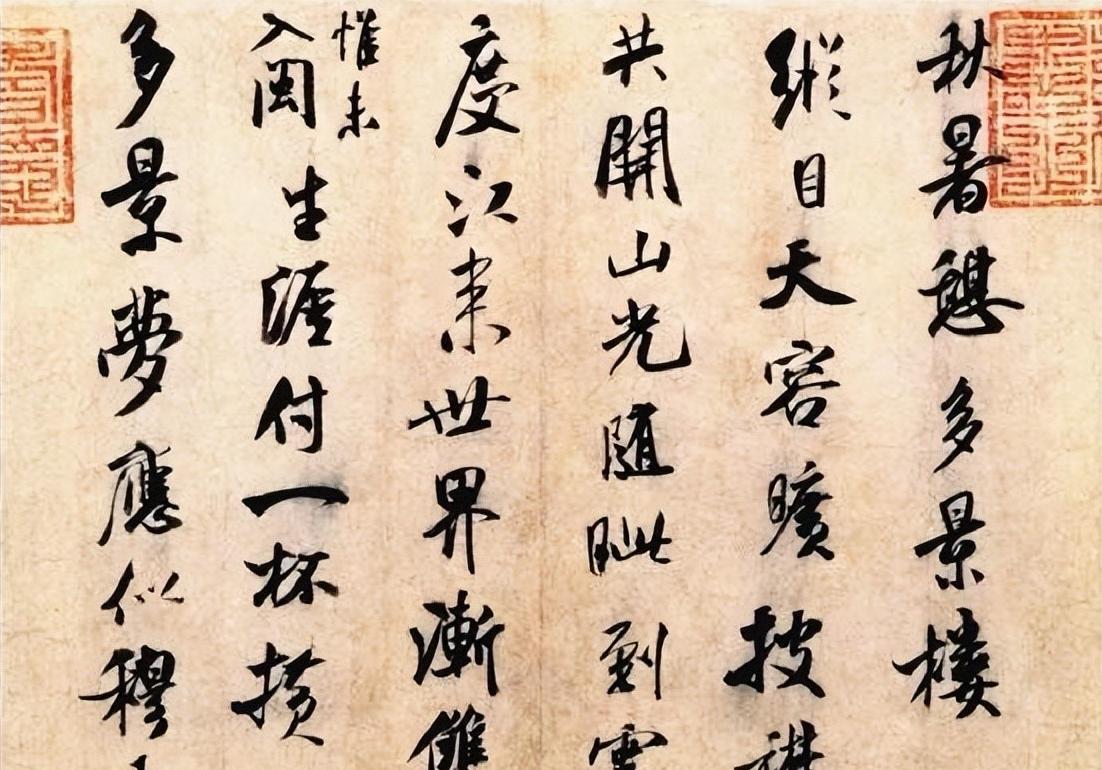 秋暑憩多景樓
縱目天容曠披襟
共開山光隨眦到雲
度江來世界漸雙
惟未
入閩生涯付一杯橫
多景夢應似穆